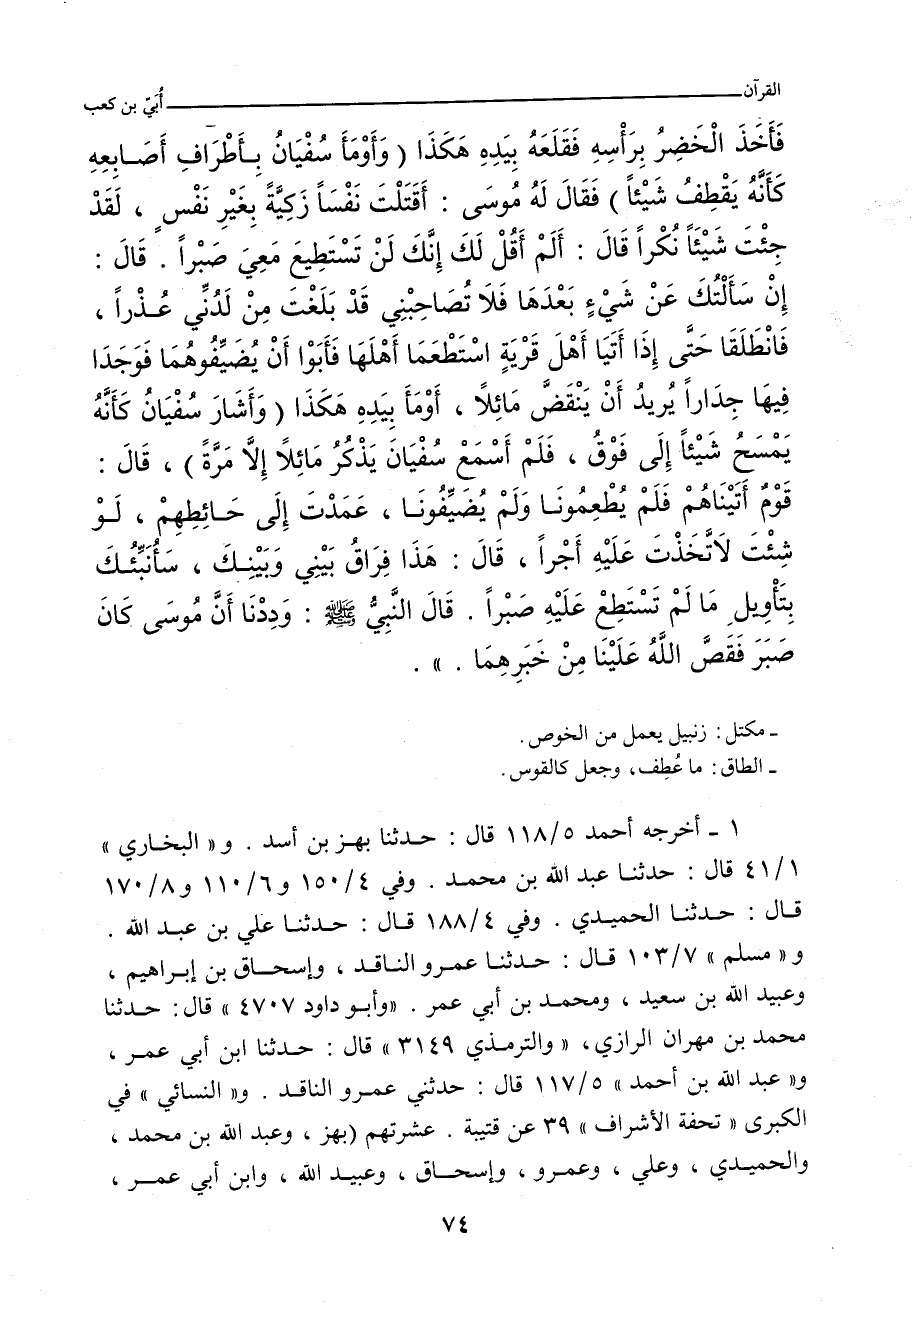 القرآن ــــــ أُبَيّ بن كعب
فَأَخَذَ الْخَضِرُ بِرَأْسِهِ فَقَلَعَهُ بِيَدِهِ هَكَذَا ( وَأَوْمَأَ سُفْيَانُ بِأَطْرَافِ أَصَابِعِهِ
كَأَنَّهُ يَقْطِفُ شَيْئاً ) فَقَالَ لَهُ مُوسَى : أَقَتَلْتَ نَفْساً زَكِيَّةً بِغَيْرِ نَفْسٍ ، لَقَدْ
جِئْتَ شَيْئاً نُكْراً قَالَ : أَلَمْ أَقُلْ لَكَ إِنَّكَ لَنْ تَسْتَطِيعَ مَعِيَ صَبْراً . قَالَ :
إِنْ سَأَلْتُكَ عَنْ شَيْءٍ بَعْدَهَا فَلاَ تُصَاحِبْنِي قَدْ بَلَغْتَ مِنْ لَدُنِّي عُذْراً ،
فَانْطَلَقَا حَتَّى إِذَا أَتَيَا أَهْلَ قَرْيَةٍ اسْتَطْعَمَا أَهْلَهَا فَأَبَوْا أَنْ يُضَيِّفُوهُمَا فَوَجَدَا
فِيهَا جِدَاراً يُرِيدُ أَنْ يَنْقَضَّ مَائِلاً ، أَوْمَأَ بِيَدِهِ هَكَذَا ( وَأَشَارَ سُفْيَانُ كَأَنَّهُ
يَمْسَحُ شَيْئاً إِلَى فَوْقُ ، فَلَمْ أَسْمَعْ سُفْيَانَ يَذْكُرُ مَائِلاً إِلاَّ مَرَّةً ) ، قَالَ :
قَوْمٌ أَتَيْنَاهُمْ فَلَمْ يُطْعِمُونَا وَلَمْ يُضَيِّفُونَا ، عَمَدْتَ إِلَى حَائِطِهِمْ ، لَوْ
شِئْتَ لاَتَّخَذْتَ عَلَيْهِ أَجْراً ، قَالَ : هَذَا فِرَاقُ بَيْنِي وَبَيْنِكَ ، سَأُنَبِّئُكَ
بِتَأْوِيلِ مَا لَمْ تَسْتَطِعْ عَلَيْهِ صَبْراً . قَالَ النَّبِيُّ ﷺ : وَدِدْنَا أَنَّ مُوسَى كَانَ
صَبَرَ فَقَصَّ اللَّهُ عَلَيْنَا مِنْ خَبَرِهِمَا . » .
ـ مكتل : زنبيل يعمل من الخوص .
ـ الطاق : ما عُطِف ، وجعل كالقوس .
١ ـ أخرجه أحمد ١١٨/٥ قال : حدثنا بهز بن أسد . و« البخاري »
٤١/١ قال : حدثنا عبد الله بن محمد . وفي ١٥٠/٤ و١١٠/٦ و١٧٠/٨
قال : حدثنا الحميدي . وفي ١٨٨/٤ قال : حدثنا علي بن عبد الله .
و« مسلم » ١٠٣/٧ قال : حدثنا عمرو الناقد ، وإسحاق بن إبراهيم ،
وعبيد الله بن سعيد ، ومحمد بن أبي عمر . «وأبو داود ٤٧٠٧ » قال: حدثنا
محمد بن مهران الرازي، « والترمذي ٣١٤٩ » قال : حدثنا ابن أبي عمر ،
و« عبد الله بن أحمد » ١١٧/٥ قال : حدثني عمرو الناقد . و« النسائي » في
الكبرى « تحفة الأشراف » ٣٩ عن قتيبة . عشرتهم (بهز ، وعبد الله بن محمد ،
والحميدي ، وعلي ، وعمرو ، وإسحاق ، وعبيد الله ، وابن أبي عمر ،
٧٤